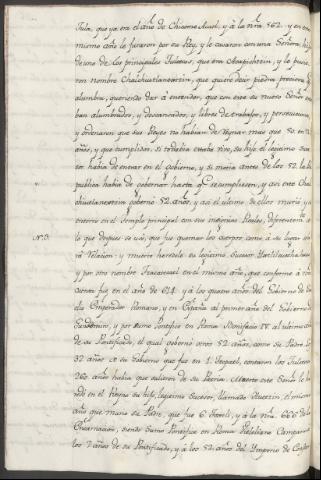 Tula, que ya era el año de Chicome Acatl, y à la nrã 562. y en este
mismo año le juraron por su Rey, y le casaron con una Señora, hija
de uno de los principales Tultecas, que era Acapichtzin, y le pusie
ron nombre Chalchiuhtlanextzin, que quiere decir piedra preciosa q̃
alumbra, queriendo dar à entender, que con este su nuevo Señor es
ban alumbrados, y descansados, y libres de trabajos, y persecuciones
y ordenaron que sus Reyes no habian de Reynar mas que 52. en 52.
años, y que cumplidos, si todavia estaba vivo, su hijo el legitimo suce
sor habia de entrar en el Govierno, y si moria antes de los 52. la Re
publica habia de gobernar hasta q̃ se cumpliesen, y asi este Chal
chiuhtlanextzin goberno 52. años, y asi el ultimo de ellos murio y se
enterro en el Templo principal con sus insignias Reales, diferentemte
lo que despues se usó, que fue quemar los cuerpos como à su lugar se ha
N. 3.
rá Relacion: y muerto heredole su legitimo Sucesor Ixtlilcuechahuac
y por otro nombre Tzacatecatl en el mismo año, que conforme à nra
cuenta fue en el año de 614. y à los quatro años del Gobierno de
clio Emperador Romano, y en España al primer año del Gobierno de
Gundemiro, y por sumo Pontifice en Roma Bonifacio IV. al ultimo año
de su Pontificado, el qual goberno otros 52. años, como su Padre. A los
32 años de su Gobierno que fue en 1. Tecpatl, contaron los Tultecas
260 años habia que salieron de su Patria. Muerto este Señor le here
dó en el Reyno su hijo, legitimo Sucesor, llamado Huetzin, el mismo
año que murio su Padre, que fue 6. Tochtli, y à la nrã. 666. de la
Encarnacion, siendo Sumo Pontifice en Roma Vitaliano Campano à
los 7. años de su Pontificado, y à los 52. años del Imperio de Constan